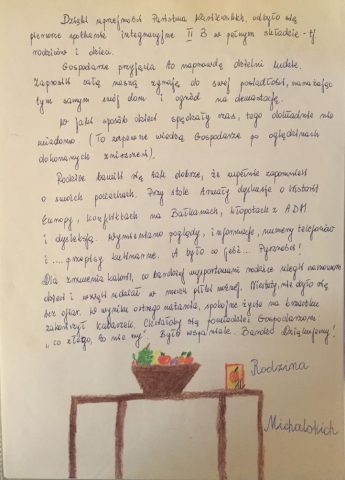 Dzięki uprzejmości Państwa odbyło się
pierwsze spotkanie integracyjne II B w pełnym składzie - tj
rodziców i dzieci.
Gospodarze przyjęcia to naprawdę dzielni ludzie.
Zaprosili całą naszą zgraję do swej posiadłości, narażając
tym samym swój dom i ogród na demastację.
W jaki sposób dzieci spędzały czas, tego dokładnie nie
wiadomo. (To zapewne wiedzą Gospodarze po oględzinach
dokonanych zniszczeń).
Rodzice bawili się tak dobrze, że zupełnie zapomnieli
o swoich pociechach. Przy stole trwały dyskusje o historii
Europy, konfliktach na Bałkanach, kłopotach z ADM
i dysleksją. Wymieniano poglądy, informacje, numery telefonów
i .... przepisy kulinarne. A było co jeść... Pyszności!
Dla zrzucenia kalorii, co bardziej wysportowani rodzice ulegli namowom
dzieci i wzięli udział w meczu piłki nożnej. Niestety, nie było się
bez ofiar. W wyniku ostrego natarcia, spokojne życie na krzaczku
zakończył kabaczek. Chciałoby się powiedzieć Gospodarzom:
"co złego, to nie my". Było wspaniale. Bardzo dziękujemy!
Rodzina
Michalskich